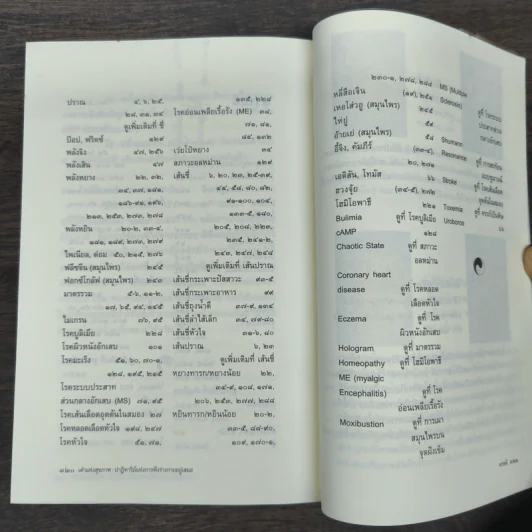 ปราณ ๔, ๖, ๒๕,
๒๘, ๓๑, ๓๔
ดูเพิ่มเติมที่ ชี่
ป๊อป, ฟริตซ์ ๑๒๙
พลังจิง ๔๗, ๒๕๖
พลังเส้น ๔๗
พลังหยาง ๒๒, ๓๒,
๓๔, ๓๗, ๑๘๑,
๑๘๖-๙๑, ๑๙๖,
๒๑๓, ๒๕๓, ๒๗๓, ๒๗๘
พลังหยิน ๒๐-๒, ๓๓-๔,
๑๘๑, ๑๘๙, ๒๗๓, ๒๗๙
ไพเนียล, ต่อม ๕๐, ๒๑๕, ๒๗๖
ฟลีซซีน (สมุนไพร) ๒๔๕
ฟอกซ์โกล้ฟ (สมุนไพร) ๒๔๕
มาตรรวม ๕-๖, ๑๑-๒,
๑๗, ๖๕, ๙๔, ๑๔๕
ไมเกรน ๗๖, ๙๕
โรคบูลิเมีย ๒๒๘
โรคผิวหนังอักเสบ ๑๐๑
โรคมะเร็ง ๕๑, ๖๐, ๗๐-๑,
๑๒๘, ๑๙๕, ๒๑๕
โรคระบบประสาท
ส่วนกลางอักเสบ (MS) ๗๑, ๙๕
โรคเส้นเลือดอุดตันในสมอง ๒๗
โรคหลอดเลือดหัวใจ ๑๙๘, ๒๔๗
โรคหัวใจ ๕๑, ๗๑,
๑๓๕, ๒๒๘
โรคอ่อนเพลียเรื้อรัง (ME) ๓๘,
๗๑, ๘๑,
๘๔, ๑๓๒
เว่ยโป๋หยาง ๓๔
สภาวะอลหม่าน ๑๒๙
เส้นชี่ ๖, ๒๐, ๒๓, ๒๕-๓๙,
๔๔, ๕๘, ๘๐, ๘๒,
๙๑-๑๐๐, ๑๐๔,
๑๓๓-๕, ๑๘๐,
๒๐๕, ๒๐๘, ๒๒๓,
๒๓๕, ๒๔๑-๒,
๒๔๓, ๒๔๗, ๒๔๘
ดูเพิ่มเติมที่ เส้นปราณ
เส้นชี่กระเพาะปัสสาวะ ๙๓-๕
เส้นชี่กระเพาะอาหาร ๙๙
เส้นชี่ถุงน้ำดี ๓๗-๙, ๑๓๔
เส้นชี่ลำไส้เล็ก ๓๔, ๗๙-๘๐
เส้นชี่หัวใจ ๓๑-๖, ๘๐
เส้นปราณ ๖, ๒๓
ดูเพิ่มเติมที่ เส้นชี่
หยางทารก/หยางน้อย ๒๒,
๓๔-๙, ๑๐๘, ๑๗๑,
๒๐๖, ๒๕๓, ๒๗๗, ๒๘๘
หยินทารก/หยินน้อย ๒๐-๒,
๓๓-๕, ๘๘-๙๐,
๑๐๙, ๑๗๐-๑,
๒๓๐-๑, ๒๗๘, ๒๘๘
หลี่สือเจิน (๑๙), ๒๕๑
เหอโส่วอู (สมุนไพร) ๒๔๕
ไห่ปู่ ๕๔
อ้ายเย่ (สมุนไพร) ๕๘
อี้จิง, คัมภีร์ (๓๓-๔),
๒๐, ๒๗๑
เอดิสัน, โทมัส ๖๖
ฮวงจุ้ย (๓๔-๕), ๒๗๒
โฮมีโอพาธี ๒๒๑
Bulimia ดูที่ โรคบูลิเมีย
cAMP ๑๒๘
Chaotic State ดูที่ สภาวะ
อลหม่าน
Coronary heart
disease ดูที่ โรคหลอด
เลือดหัวใจ
Eczema ดูที่ โรค
ผิวหนังอักเสบ
Hologram ดูที่ มาตรรวม
Homeopathy ดูที่ โฮมีโอพาธี
ME (myalgic
Encephalitis) ดูที่ โรค
อ่อนเพลียเรื้อรัง
Moxibustion ดูที่ การเผา
สมุนไพรบน
จุดฝังเข็ม
MS (Multiple
Sclerosis)
Shumann
Resonance
Stroke
Toxemia
Uroboros
๓๒๐ เต๋าแห่งสุขภาพ ปาฏิหาริย์แห่งการพึ่งร่างกายอยู่เสมอ